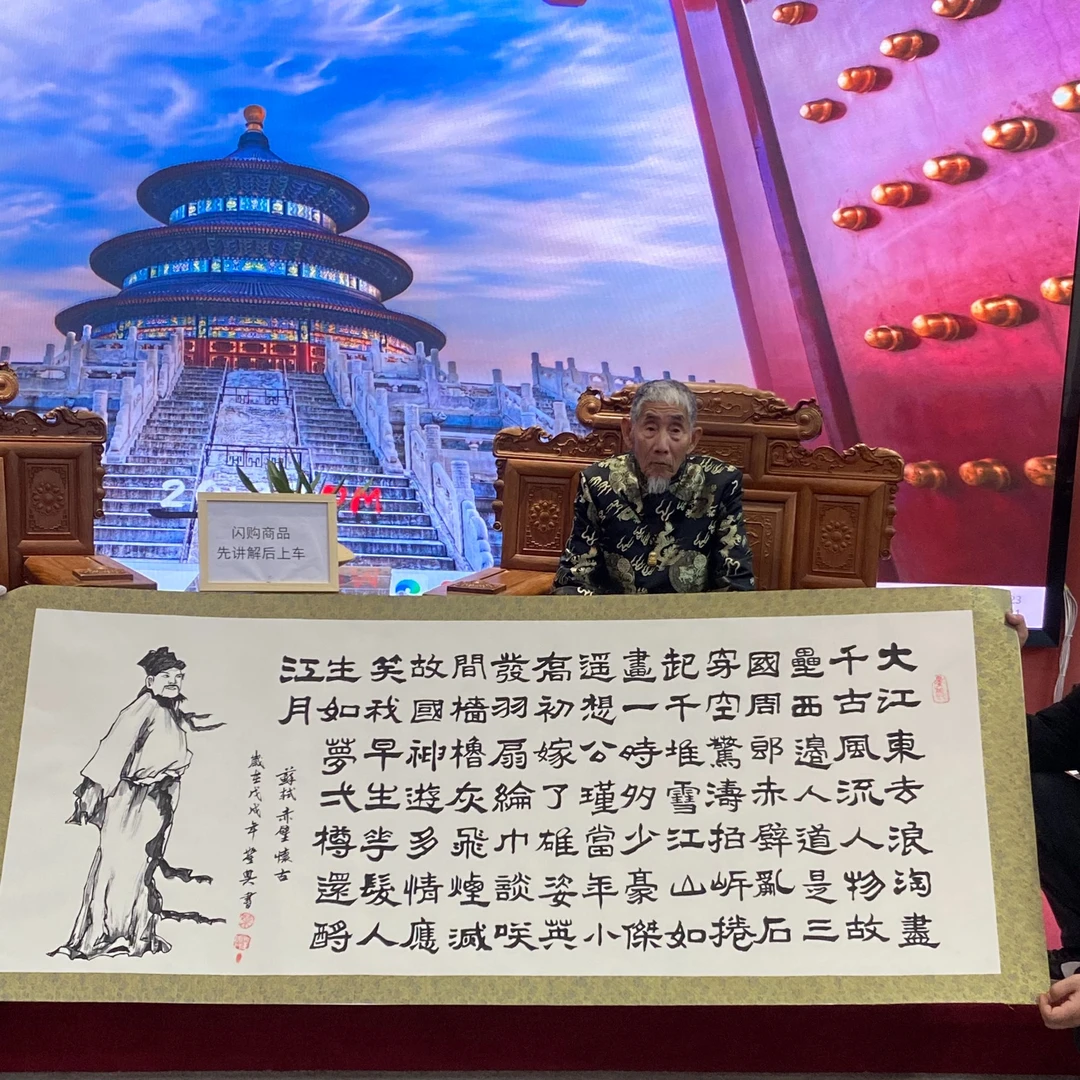 闪购商品
先讲解后上车
大江東去浪淘盡
千古風流人物故
壘西邊人道是三
國周郎赤壁亂石
穿空驚濤拍岸捲
起千堆雪江山如
畫一時多少豪傑
遥想公瑾當年小
喬初嫁了雄姿英
發羽扇綸巾談咲
間檣櫓灰飛煙滅
故國神遊多情應
笑我早生華髮人
生如夢弌樽還酹
江月
蘇軾赤壁懷古
歲在戊戌年 書